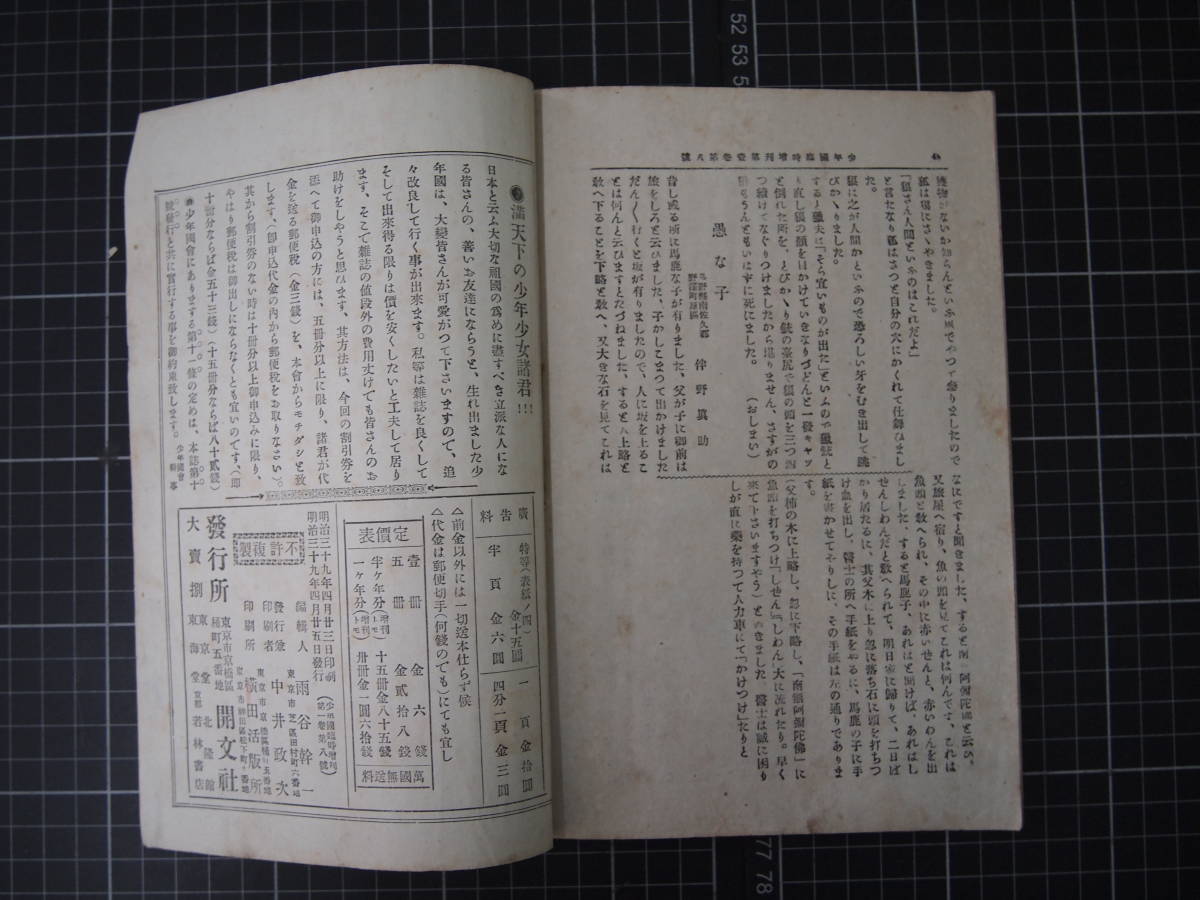 少年國臨時增刊第壹卷第八號
獲物がないか知らんといふ風でやつて參りましたので
狐は狼にさゝやきました。
「狼さん人間といふのはこれだよ」
と言たなり狐はさつと自分の穴にかくれて仕舞ひまし
た。
狼は之が人間かといふので恐ろしい牙をむき出して跳
びかゝりました。
すると獵夫は「そら宜いものが出た」といふので獵銃と
り直し狼の顏を目かけていきなりづどんと一發キャッ
と倒れた所を、とびかゝり銃の臺尻で狼の頭を三つ四
つ續けてなぐりつけましたから堪りません、さすがの
狼もうんともいはずに死にました。
（おしまい）
愚な子
野澤町原區
伴野眞助
昔し或る所に馬鹿な子が有りました、父が子に御前は
旅をしろと云ひました、子かしこまつて出かけました
だん〳〵行くと坂が有りましたので、人に坂を上るこ
とは何んと云ひますとたづねました、すると人上略と
敎へ下ることを下略と敎へ、又大きな石を見てこれは
なにですと聞きました、すると南無阿彌陀佛と云ひ、
又旅屋へ宿り、魚の頭を見てこれは何んです、これは
魚頭と敎へられ、その中に赤いせんと、赤いわんを出
しました、すると馬鹿子、あれはと聞けば、あれはし
せんしわんだと敎へられて、明日家に歸りて、二日ば
かり居たるに、其父木に上り忽に落ち石に頭を打ちつ
け血を出し、醫士の所へ手紙をやるに、馬鹿の子に手
紙を書かせてやりしに、その手紙は左の通りでありま
す。
（父柿の木に上略し、忽に下略し、「南無阿彌陀佛」に
魚頭を打ちつけ「しせん」「しわん」大に流れたり。早く
來て下さいますやう）とかきました 醫士は誠に困り
しが直に藥を持つて人力車にて「かけつけ」たりと
滿天下の少年少女諸君!!!
日本と云ふ大切な祖國の爲めに盡すべき立派な人にな
る皆さんの、善いお友達にならうと、生れ出ました少
年國は、大變皆さんが可愛がつて下さいますので、追
々改良して行く事が出來ます。私等は雜誌を良くして
そして出來得る限りは價を安くしたいと工夫して居り
ます、そこで雜誌の値段外の費用丈けでも皆さんのお
助けをしやうと思ひます、其方法は、今回の割引券を
添へて御申込の方には、五冊分以上に限り、諸君が代
金を送る郵便稅（金三錢）を、本會からモチダシと致
します、（卽申込代金の內から郵便稅をお取りなさい）。
其から割引券のない時は十冊分以上御申込みに限り、
やはり郵便稅は御出しにならなくとも宜いのです、（卽
十冊分ならば金五十三錢）（十五冊分ならば八十貳錢）
◉少年國會にあります第十一條の定めは、本誌第十
號發行と共に實行する事を御約束致します。 少年國會幹事
廣告料
特等（表紙ノ四）金十五圓
一頁 金拾圓
半頁 金六圓
四分一頁 金三圓
△前金以外には一切送本仕らず候
△代金は郵便切手（何錢のでも）にても宜し
定價表
壹冊 金六錢
五冊 金貳拾八錢
半ケ年分（增刊トモ） 十五冊金八十五錢
一ケ年分（增刊トモ） 卅冊金一圓六拾錢
萬國無送料
明治三十九年四月廿三日印刷
明治三十九年四月廿五日發行
（少年國臨時增刊第一卷第八號）
不許複製
編輯人 東京市芝區田村町六番地 雨谷幹一
發行兼印刷者 中井政次
印刷所 橫田活版所
發行所 東京市京橋區桶町五番地 開文社
大賣捌 東京堂 北隆館 東海堂 京都若林書店